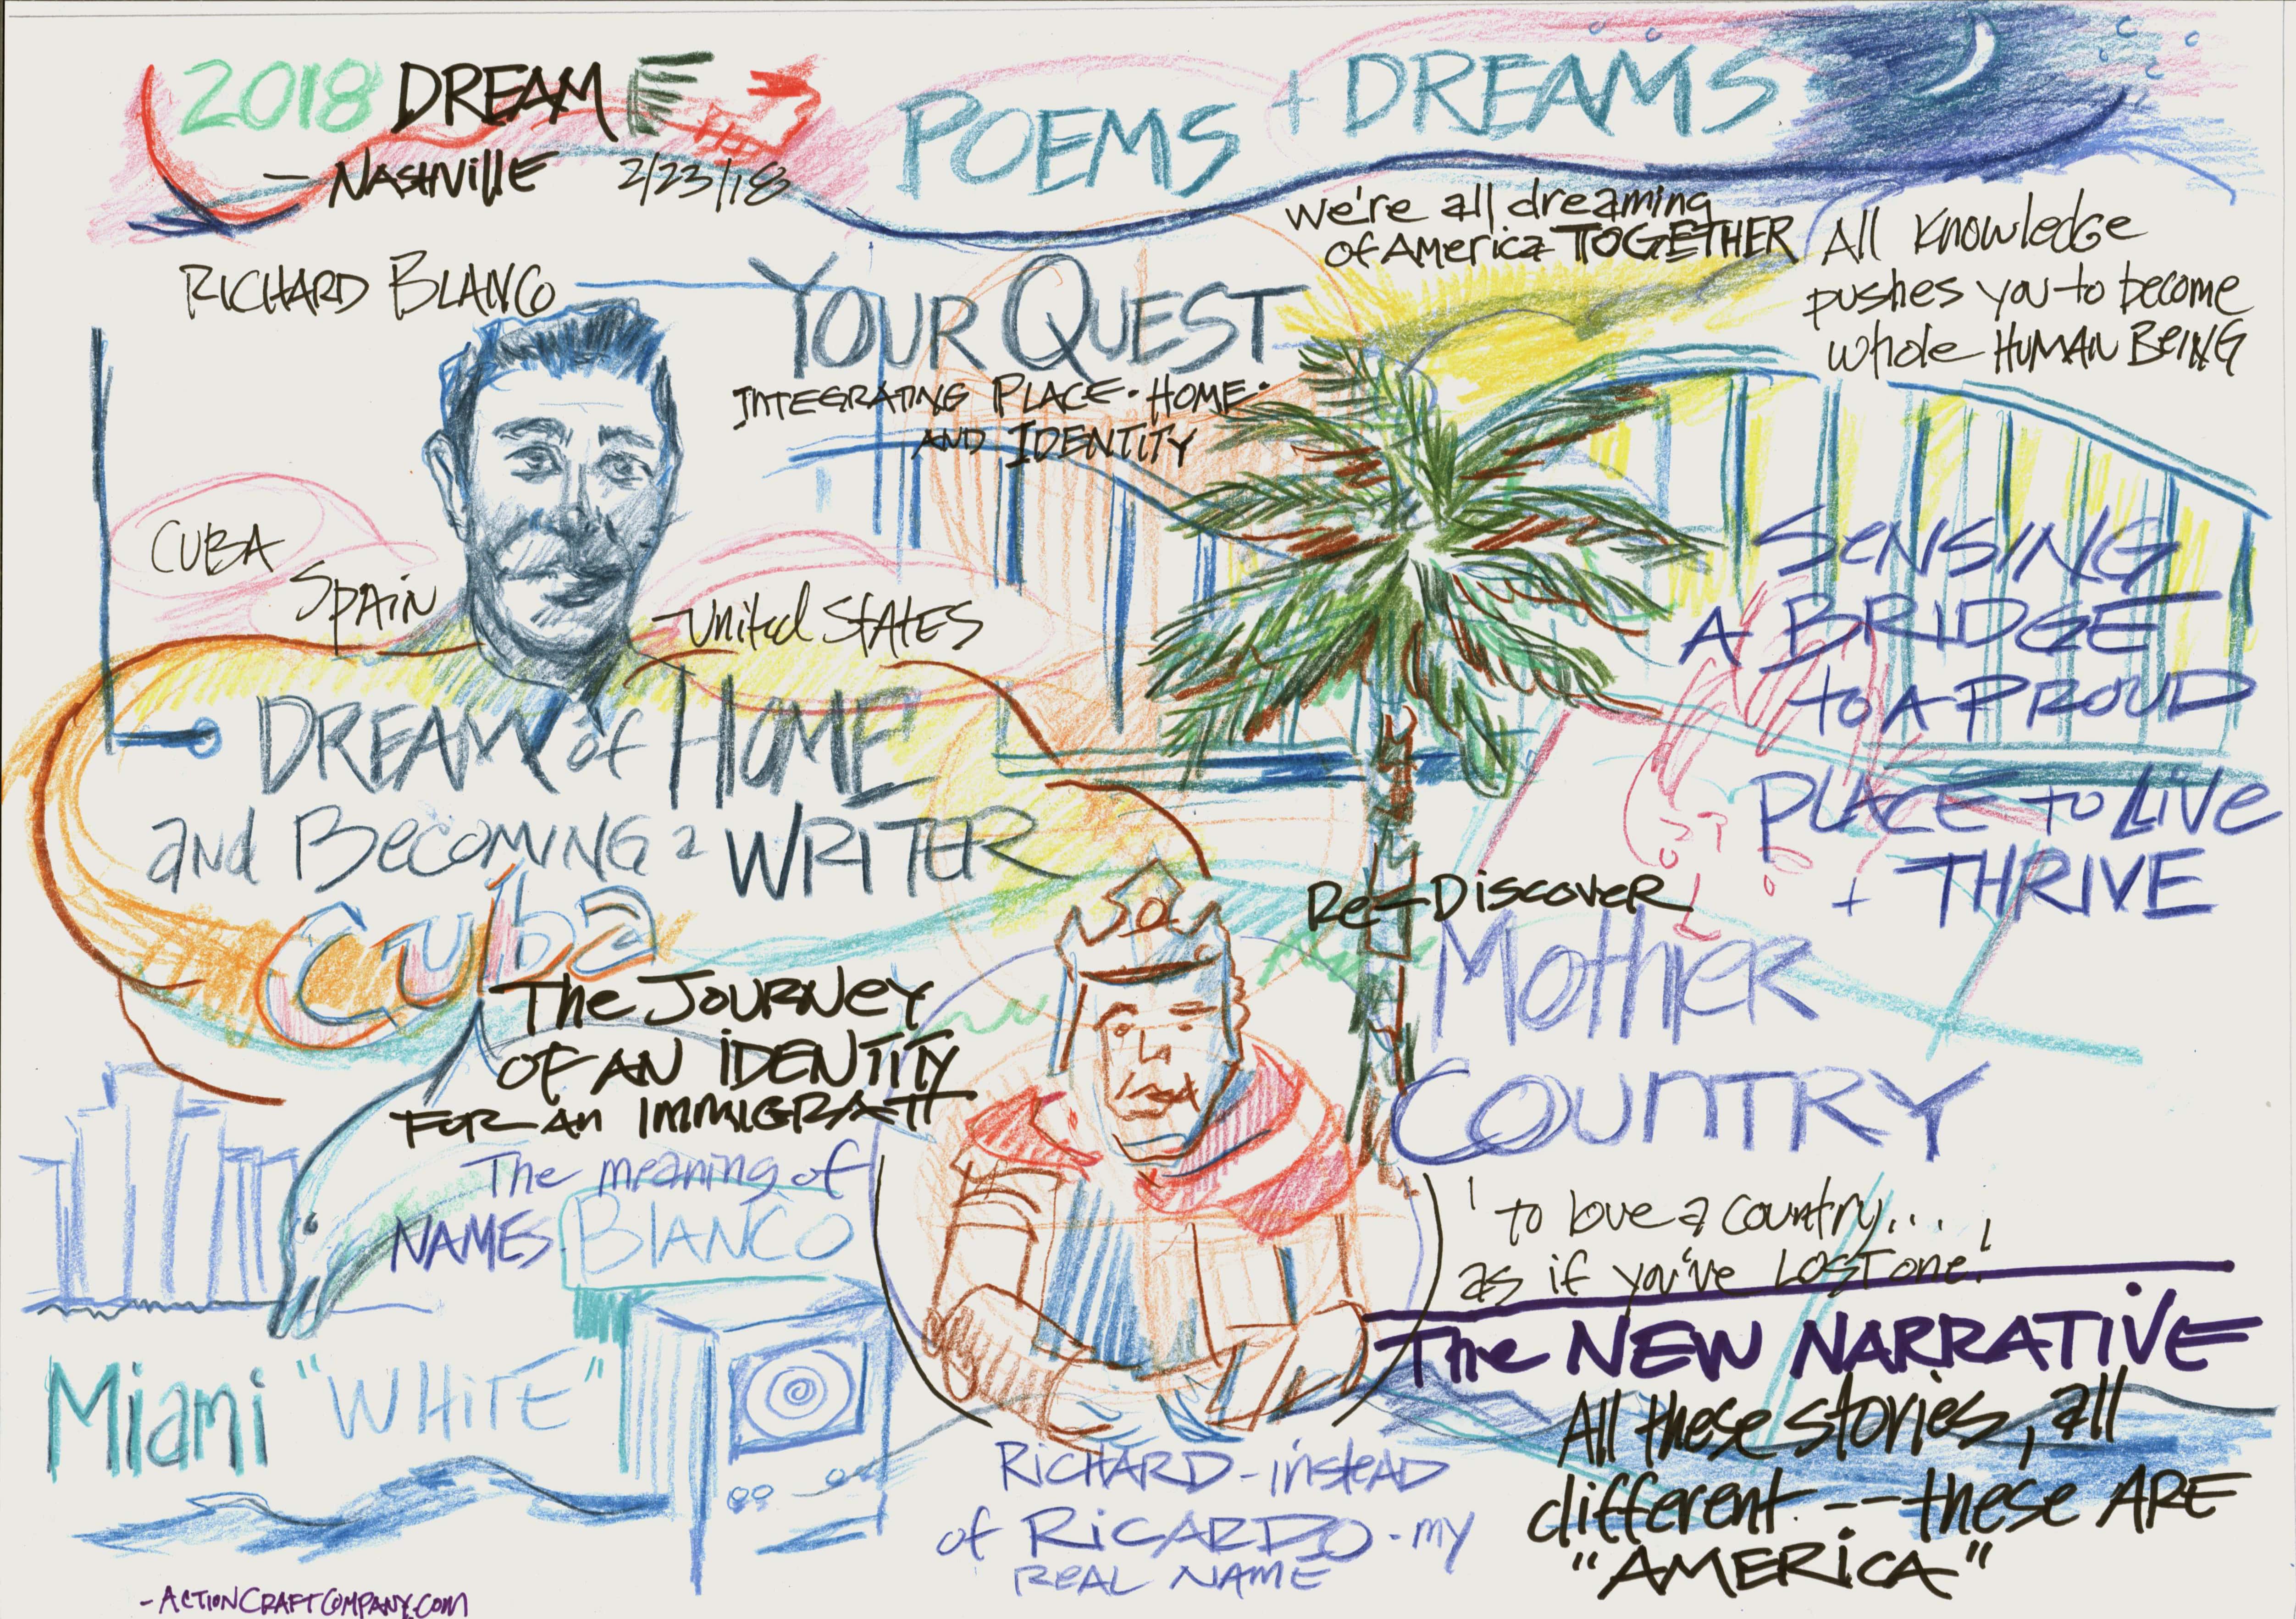 2018 DREAM
- NASHVILLE 2/23/18
POEMS + DREAMS
we're all dreaming
of America TOGETHER
All knowledge
pushes you to become
whole HUMAN BEING
RICHARD BLANCO
YOUR QUEST
INTEGRATING PLACE · HOME ·
AND IDENTITY
CUBA
SPAIN
United States
SENSING
A BRIDGE
to A PROUD
PLACE to Live
+ THRIVE
DREAM of HOME
and BECOMING a WRITER
Cuba
The JOURNEY
OF AN IDENTITY
FOR AN IMMIGRATT
Re-Discover
Mother
COUNTRY
The meaning of
NAMES BLANCO
'to love a country....,
as if you've LOST one!
Miami "WHITE"
The NEW NARRATIVE
All these stories, all
different -- these ARE
"AMERICA"
RICHARD - instead
of RICARDO - my
REAL NAME
- ACTIONCRAFTCOMPANY.COM